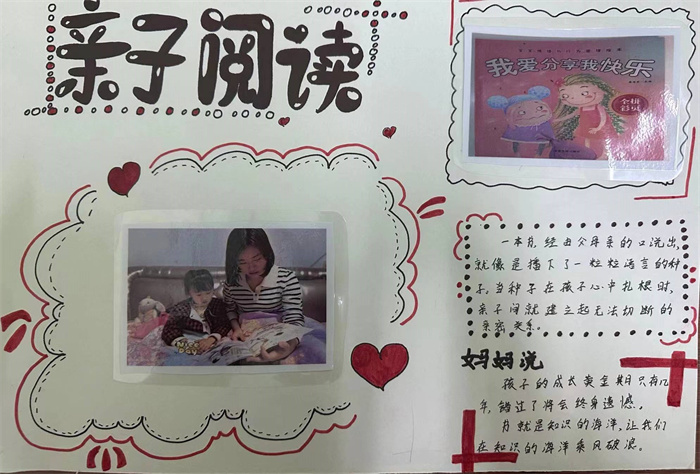 亲子阅读
我爱分享我快乐
全拼
彩绘
一本书,经由父母亲的口流出,
就像是播下了一粒粒语言的种
子,当种子在孩子心中扎根时,
亲子间就建立起无法切断的
亲密关系。
妈妈说
孩子的成长黄金期只有几
年,错过了将会终身遗憾。
书就是知识的海洋,让我们
在知识的海洋乘风破浪。